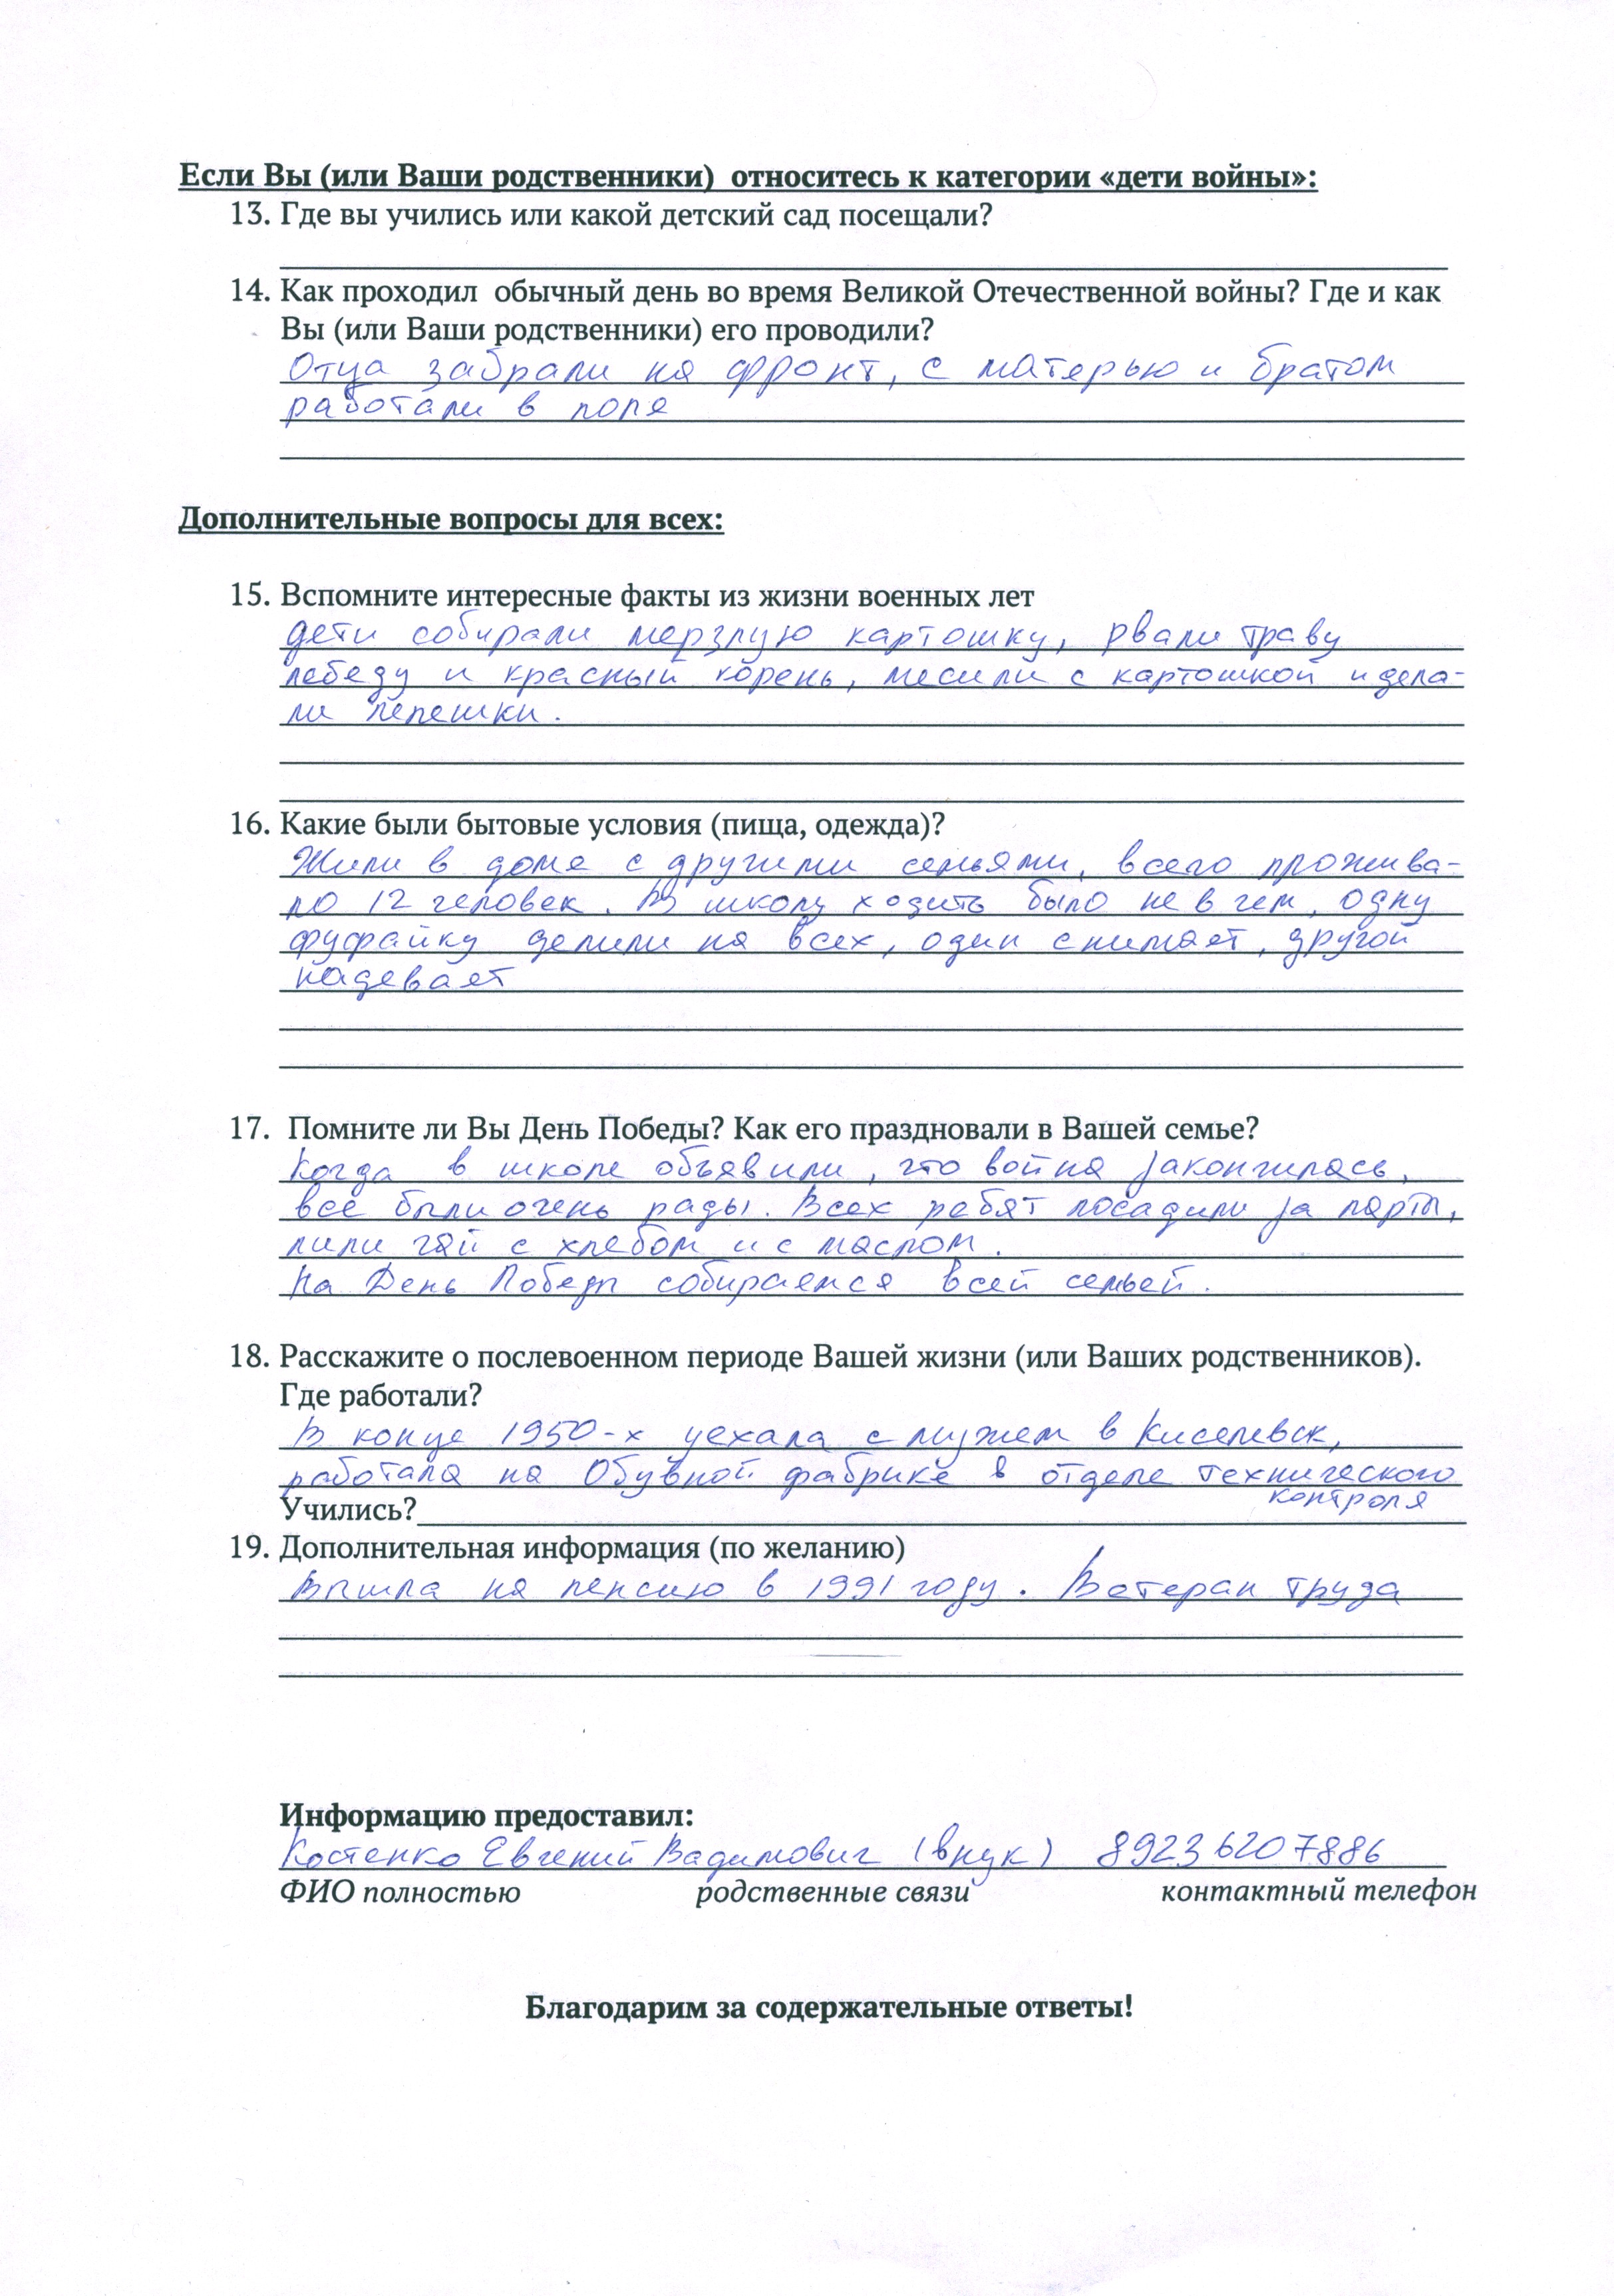 Если Вы (или Ваши родственники) относитесь к категории «дети войны»:
13. Где вы учились или какой детский сад посещали?
14. Как проходил обычный день во время Великой Отечественной войны? Где и как
Вы (или Ваши родственники) его проводили?
Отца забрали на фронт, с матерью и братом
работали в поле
Дополнительные вопросы для всех:
15. Вспомните интересные факты из жизни военных лет
дети собирали мерзлую картошку, рвали траву
лебеду и красный корень, месили с картошкой и дела-
ли лепешки.
16. Какие были бытовые условия (пища, одежда)?
Жили в доме с другими семьями, всего прожива-
ло 12 человек. В школу ходить было не в чем, одну
фуфайку делили на всех, один снимает, другой
надевает
17. Помните ли Вы День Победы? Как его праздновали в Вашей семье?
Когда в школе объявили, что война закончилась,
все были очень рады. Всех ребят посадили за парты,
пили чай с хлебом и с маслом.
На День Победы собираемся всей семьей.
18. Расскажите о послевоенном периоде Вашей жизни (или Ваших родственников).
Где работали?
В конце 1950-х уехала с мужем в Киселевск,
работала на Обувной фабрике в отделе технического
контроля
Учились?
19. Дополнительная информация (по желанию)
Вышла на пенсию в 1991 году. Ветеран труда
Информацию предоставил:
Костенко Евгений Вадимович (внук) 89236207886
ФИО полностью родственные связи контактный телефон
Благодарим за содержательные ответы!